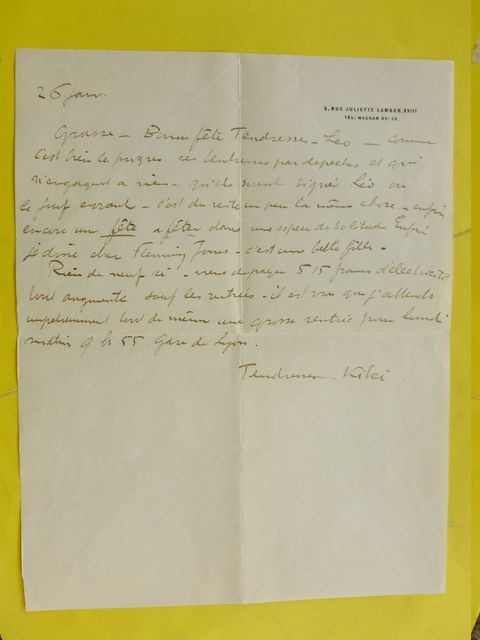 26 janv.
5, RUE JULIETTE LAMBER. XVIIE
TÉL: WAGRAM
Grasse - Bonne fête Tendresses - Léo - comme
c'est bien le progrès ces tendresses par depeches et qui
n'engagent a rien - qu'elles soient signées Léo ou
le Juif errant - c'est du reste un peu la même chose - enfin
encore une fête a fêter dans une espece de solitude Enfin
je dine chez Fleming Jones - c'est une belle fille -
Rien de neuf ici - viens de payer 515 francs d'électricité
tout augmente sauf les rentrées - il est vrai que j'attends
impatiemment tout de même une grosse rentrée pour lundi
matin 9 h 55 Gare de Lyon.
Tendresses Kiki